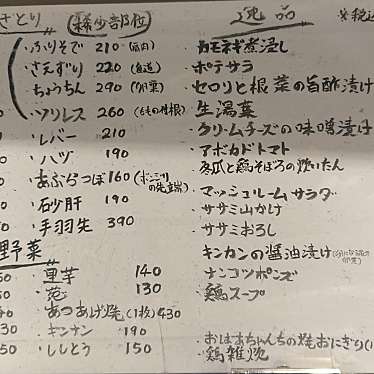 さとり (希少部位)
・ふりそで 210 (肩肉)
・さえずり 220 (食道)
・ちょうちん 290 (卵黄)
・ソリレス 260 (ももの付根)
・レバー 210
・ハツ 190
・あぶらつぼ 160 (ボンジリの先立端)
・砂肝 190
・手羽先 390
野菜
・里芋 140
・葱 130
・あつあげ焼 (1枚) 430
・ギンナン 190
・ししとう 150
逸品 ※税込
カモネギ煮浸し
・ポテサラ
・セロリと根菜の旨酢漬け
・生湯葉
・クリームチーズの味噌漬け
・アボカドトマト
・冬瓜と鶏そぼろの炊いたん
・マッシュルームサラダ
・ササミ山かけ
・ササミおろし
・キンカンの醤油漬け
・ナンコツポンズ
・鶏スープ
・おばあちゃんちの焼おにぎり(1
・鶏雑炊